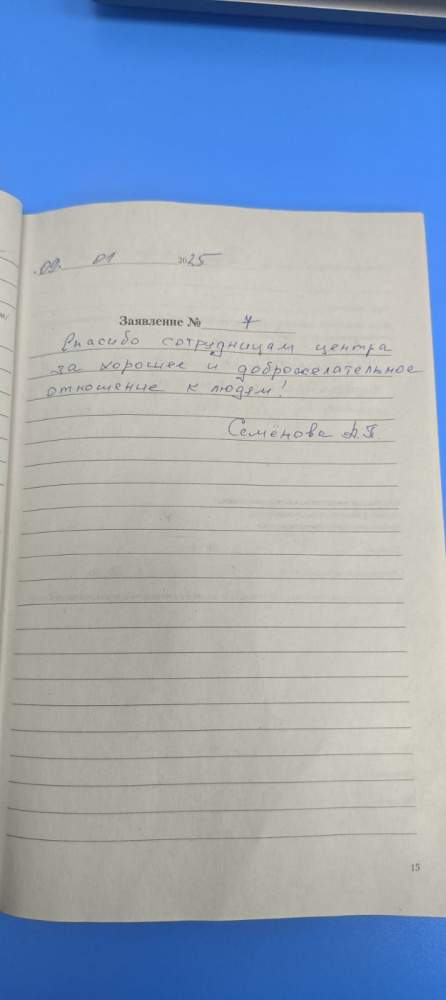 09. 01 2025
Заявление № 7
Спасибо сотрудницам центра
за хорошее и доброжелательное
отношение к людям!
Семёнова А.П
15